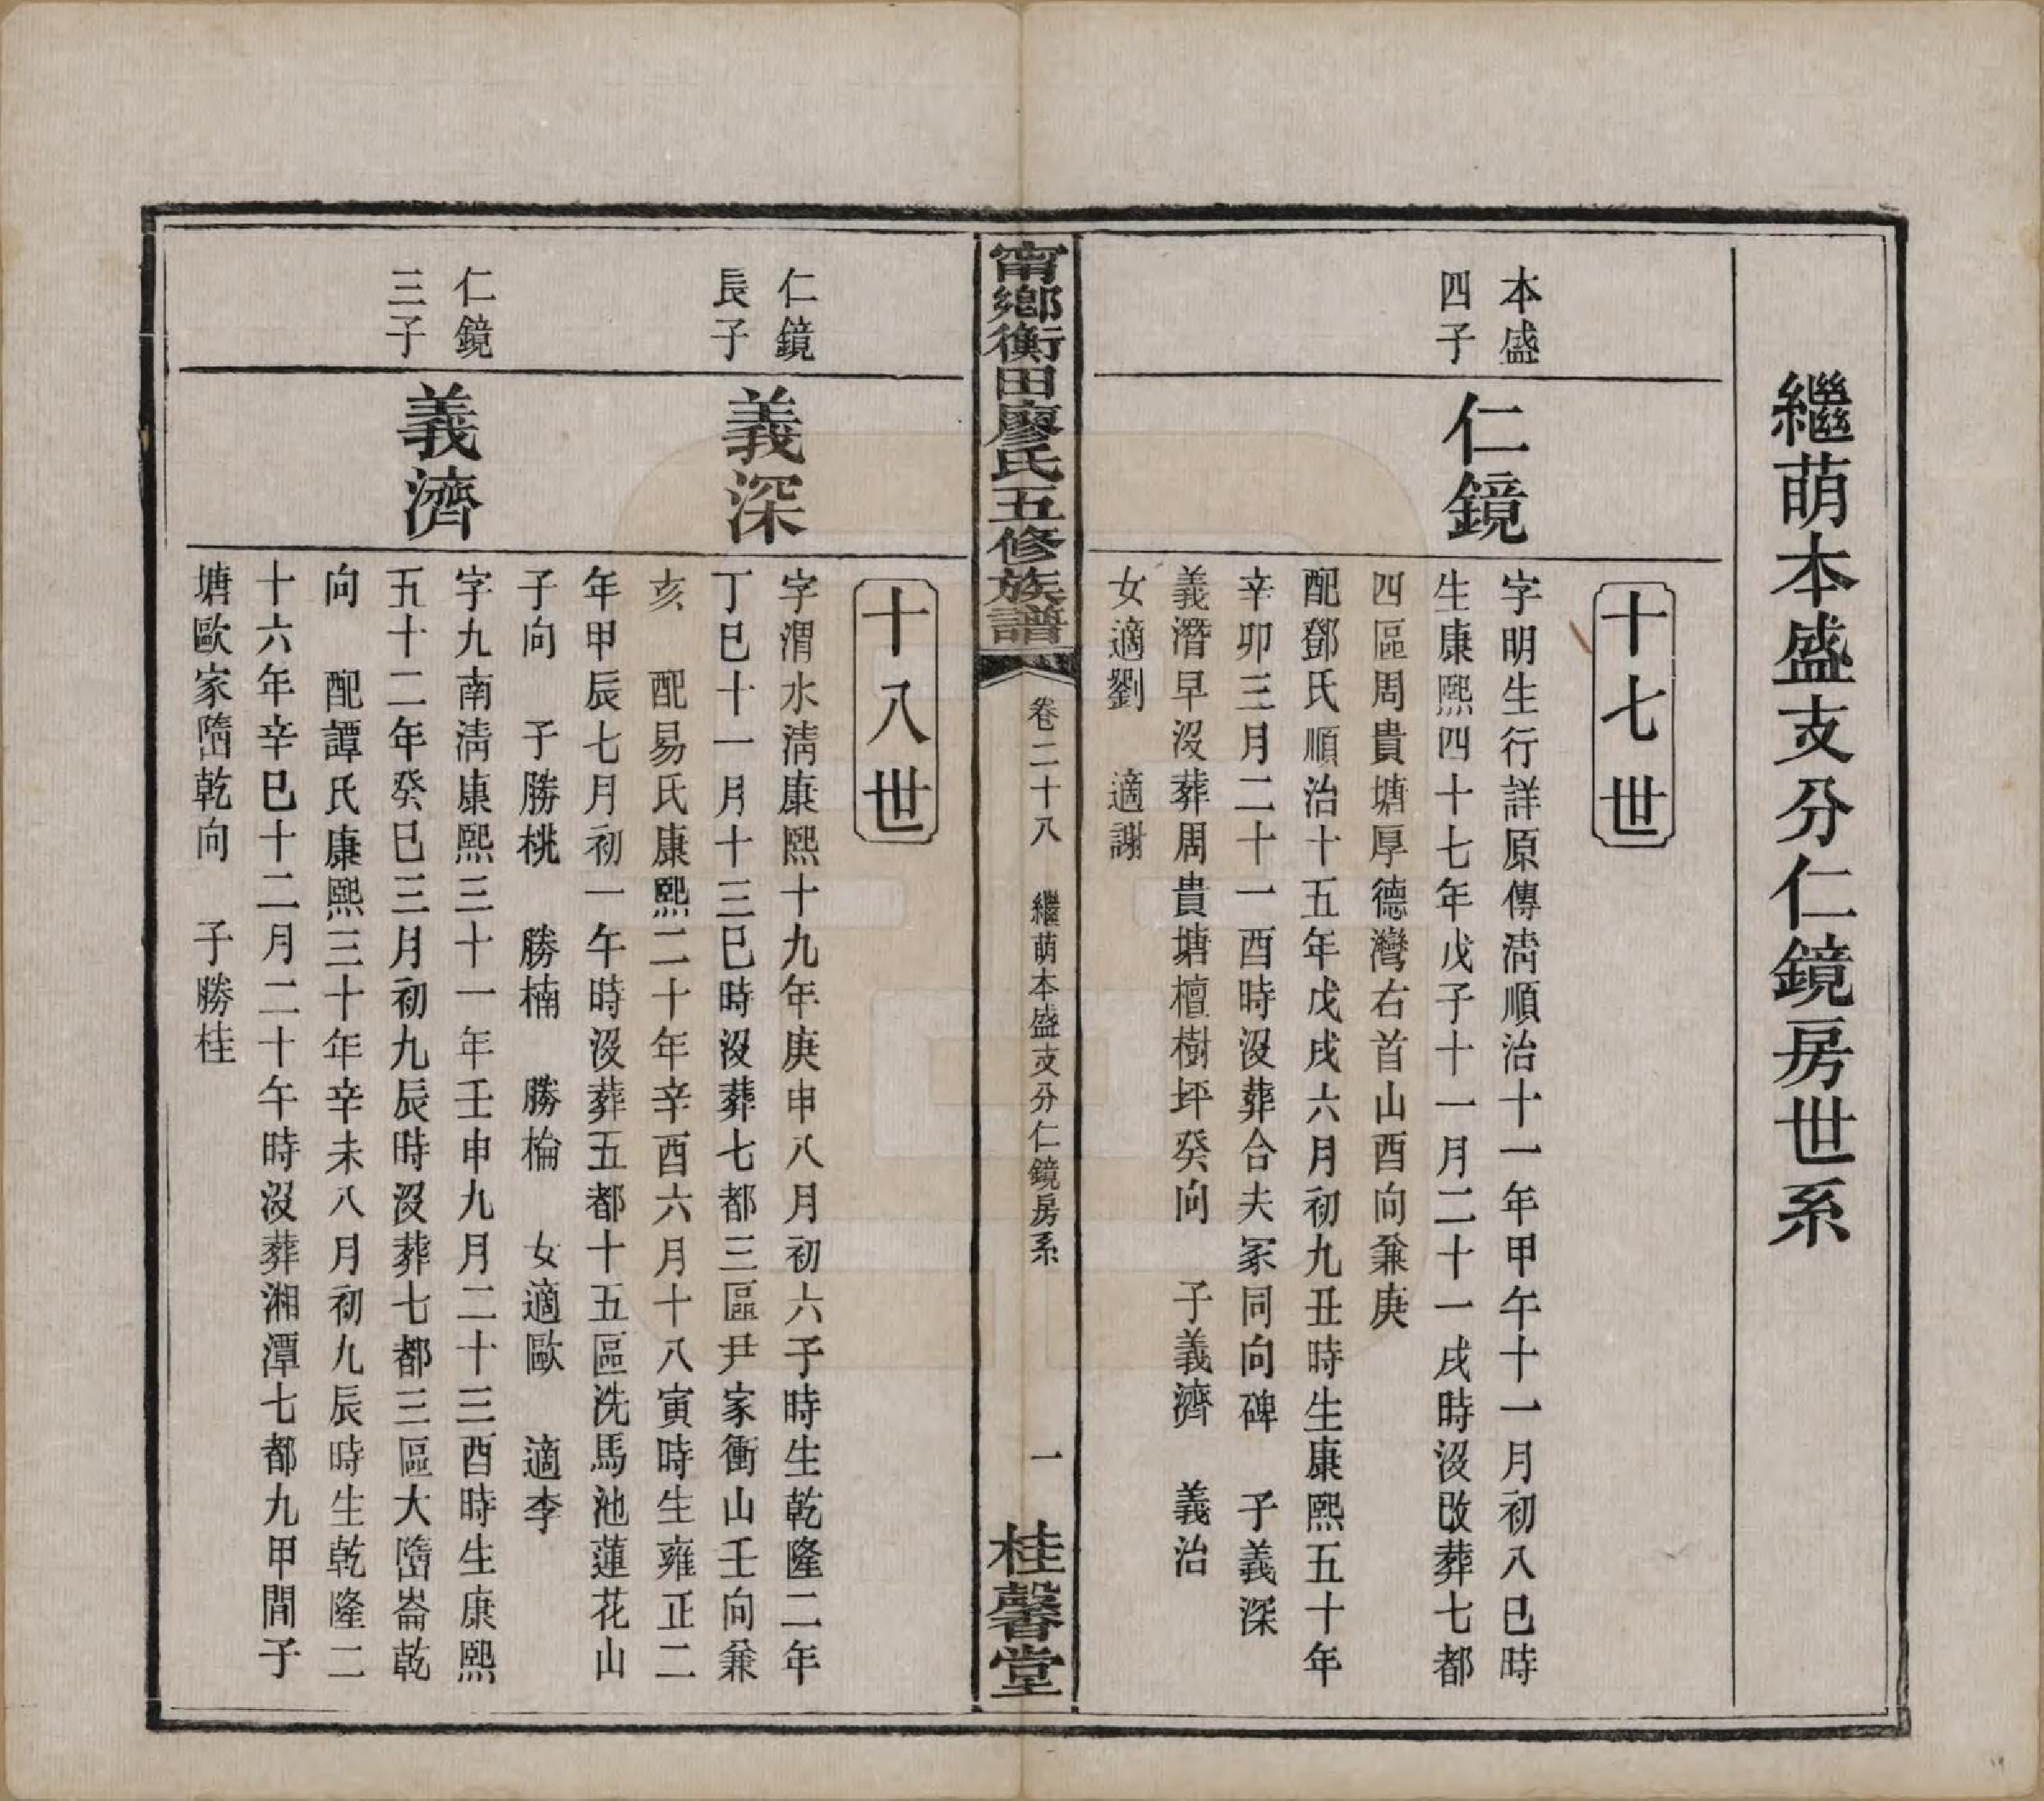 繼萌本盛支分仁鏡房世系
十七世
本盛
四子
仁鏡
字明生行詳原傳淸順治十一年甲午十一月初八巳時
生康熙四十七年戊子十一月二十一戌時沒改葬七都
四區周貴塘厚德灣右首山酉向兼庚
配鄧氏順治十五年戊戌六月初九丑時生康熙五十年
辛卯三月二十一酉時沒葬合夫冢同向碑　子義深
義濳早沒葬周貴塘檀樹坪癸向　子義濟　義治
女適劉　適謝
甯鄉衡田廖氏五修族譜
卷二十八　繼萌本盛支分仁鏡房系
一
桂馨堂
十八世
仁鏡
長子
義深
字渭水淸康熙十九年庚申八月初六子時生乾隆二年
丁巳十一月十三巳時沒葬七都三區尹家衝山壬向兼
亥　配易氏康熙二十年辛酉六月十八寅時生雍正二
年甲辰七月初一午時沒葬五都十五區洗馬池蓮花山
子向　子勝桃　勝楠　勝棆　女適歐　適李
仁鏡
三子
義濟
字九南淸康熙三十一年壬申九月二十三酉時生康熙
五十二年癸巳三月初九辰時沒葬七都三區大嶞崙乾
向　配譚氏康熙三十年辛未八月初九辰時生乾隆二
十六年辛巳十二月二十午時沒葬湘潭七都九甲間子
塘歐家嶞乾向　子勝桂